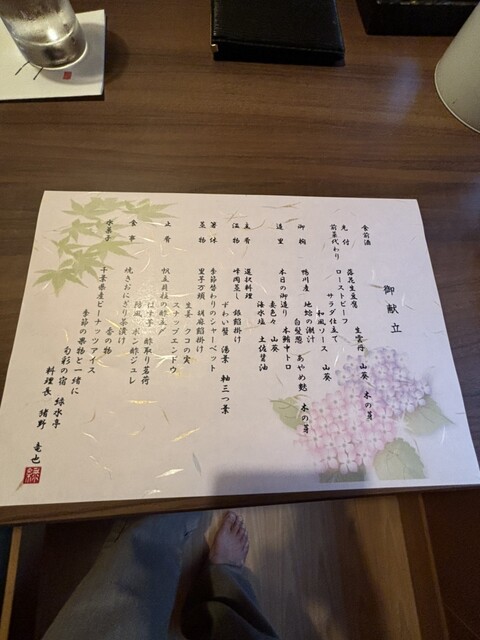 御献立
食前酒
先付 落花生豆腐 生雲丹 山葵 木の芽
前菜代わり ローストビーフ
サラダ仕立て
和風ソース 山葵
御椀 鴨川産 地蛤の潮汁
白髪葱 あやめ麩 木の芽
造里 本日の御造り 本鮪中トロ
妻色々 山葵
海水塩 土佐醤油
主肴 選択料理
温物 峰岡蒸し 銀餡掛け
ずわい蟹 湯葉 軸三つ葉
箸休 季節替わりのシャーベット
蒸物 里芋万頭 胡麻餡掛け
生姜 クコの実
スナップエンドウ
止肴 帆立貝柱の酢立〆
はす芋 酢取り茗荷
ポン酢ジュレ
食事 焼きおにぎり茶漬け
香の物
水菓子 千葉県産ピーナッツアイス
季節の果物と一緒に
旬彩の宿 緑水亭
料理長 猪野 竜也